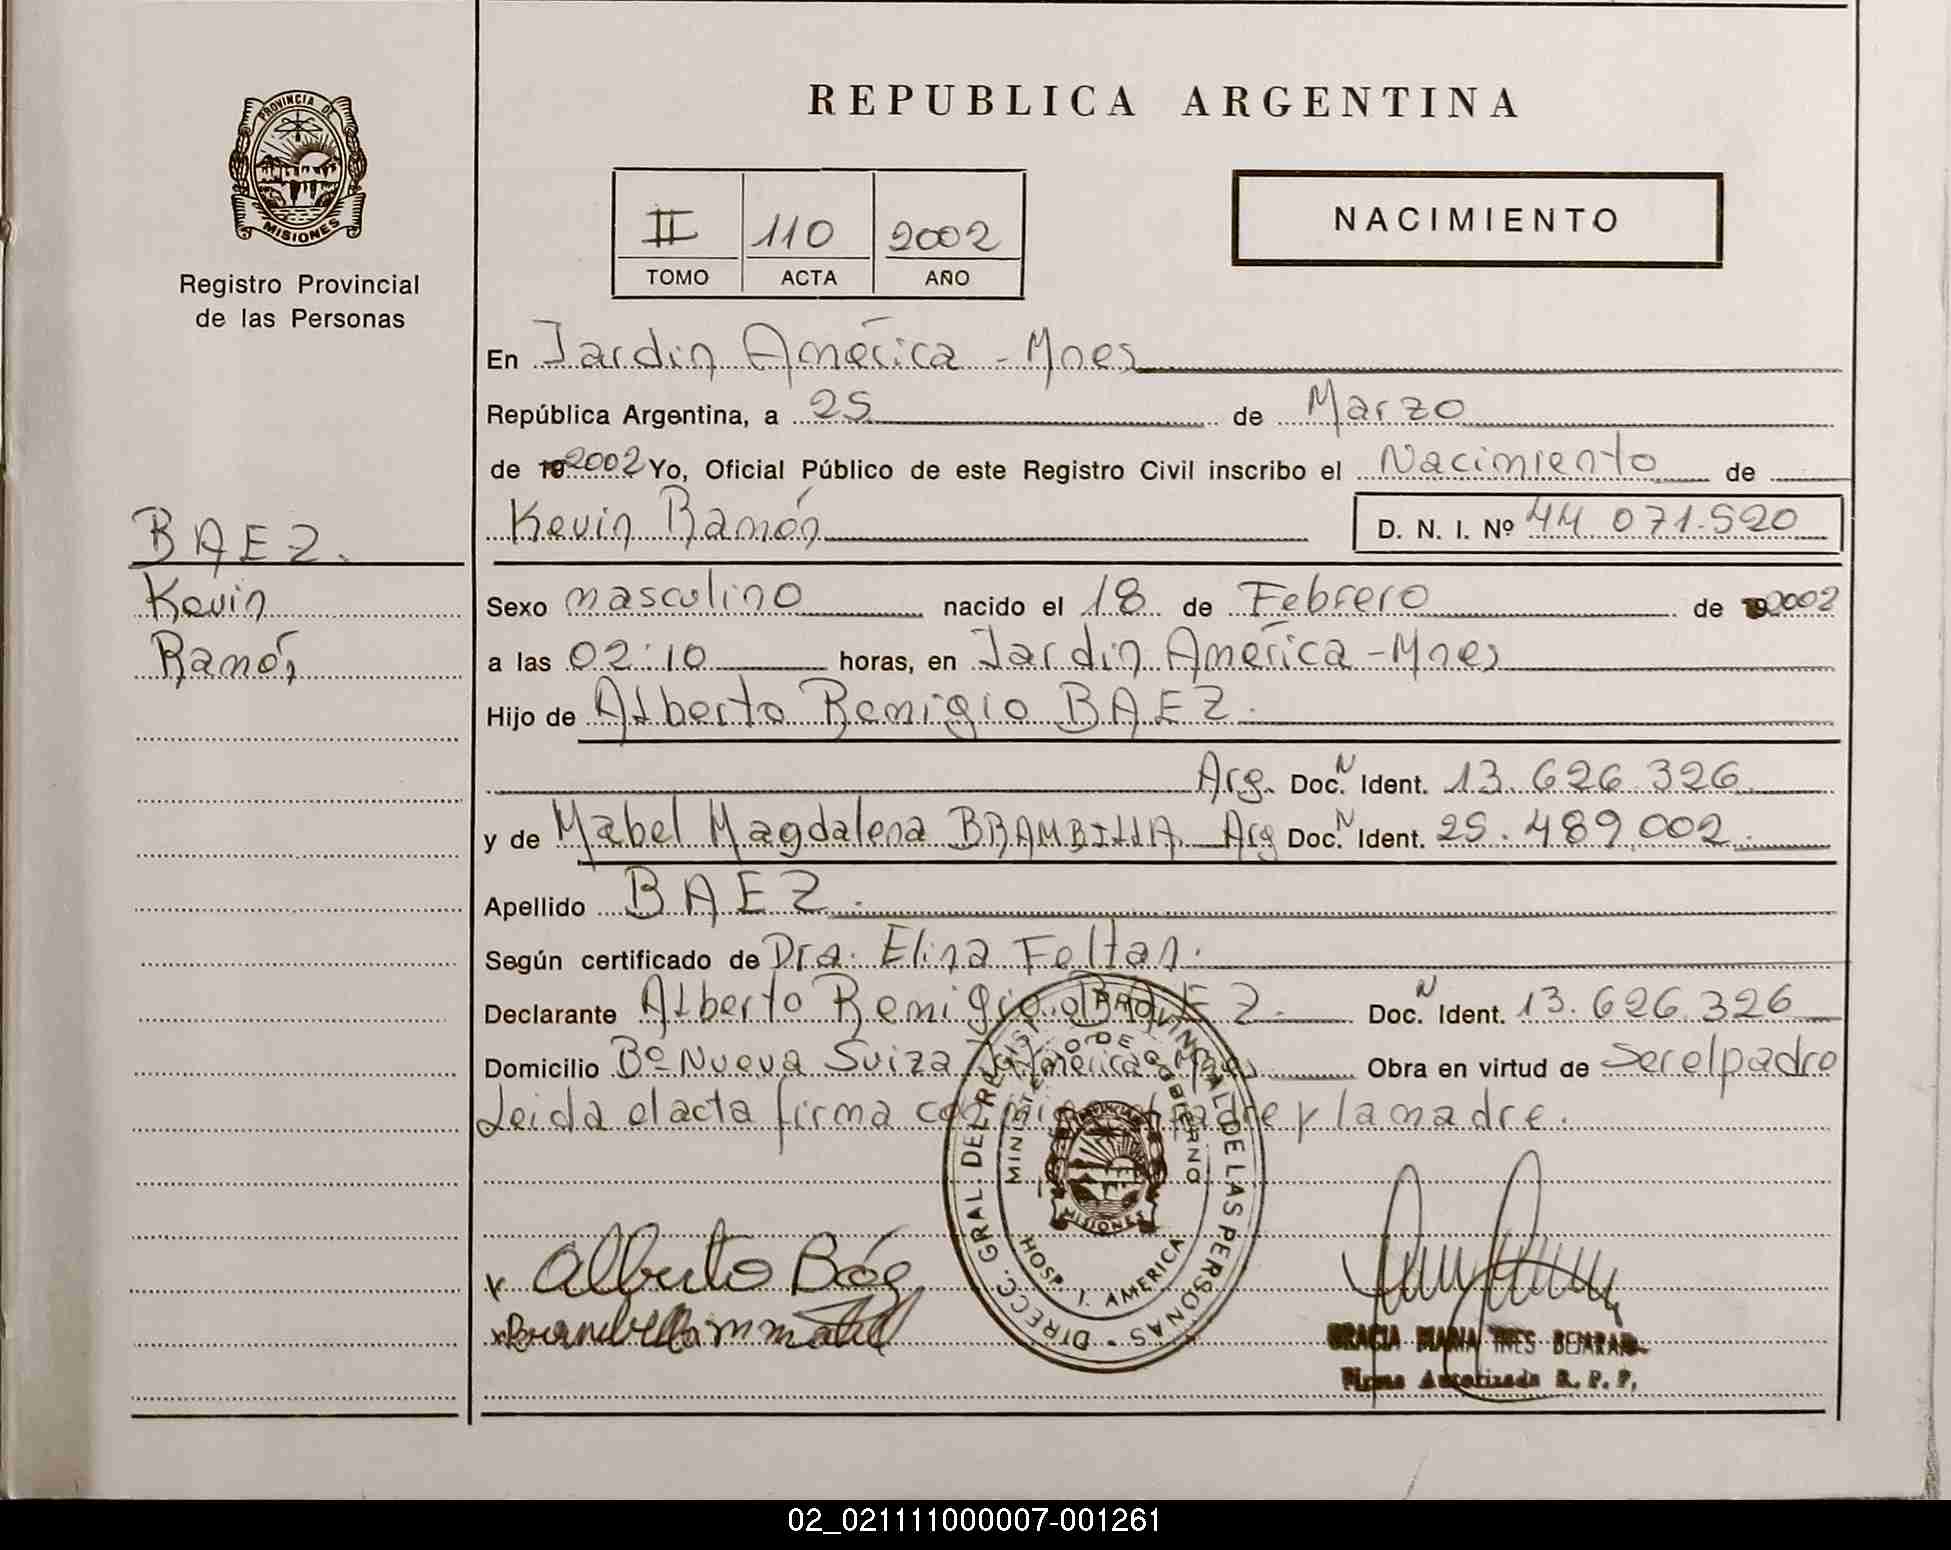 REPUBLICA ARGENTINA
PROVINCIA DE
MISIONES
Registro Provincial
de las Personas
II 110 2002
TOMO ACTA AÑO
NACIMIENTO
En Jardin América - Mnes
República Argentina, a 25 de Marzo
de 19 2002 Yo, Oficial Público de este Registro Civil inscribo el Nacimiento de
Kevin Ramón D. N. I. Nº 44 071.520
BAEZ.
Kevin
Ramón
Sexo masculino nacido el 18 de Febrero de 19 2002
a las 02:10 horas, en Jardin América - Mnes
Hijo de Alberto Remigio BAEZ.
Arg. Doc. N Ident. 13.626.326
y de Mabel Magdalena BRAMBILLA Arg Doc. N Ident. 25.489.002.
Apellido BAEZ.
Según certificado de Dra. Elina Feltan.
Declarante Alberto Remigio BAEZ. Doc. N Ident. 13.626.326
Domicilio Bº Nueva Suiza J. América Mnes Obra en virtud de Ser el padre
Leida el acta firma conmigo el padre y la madre.
DIRECC. GRAL. DEL REGIST. PROVINCIAL DE LAS PERSONAS
MINISTERIO DE GOBIERNO
MISIONES
HOSP. J. AMERICA
x Alberto Báez
GRACIA MARIA INES BEJARANO
Firma Autorizada R. P. P.
02_021111000007-001261